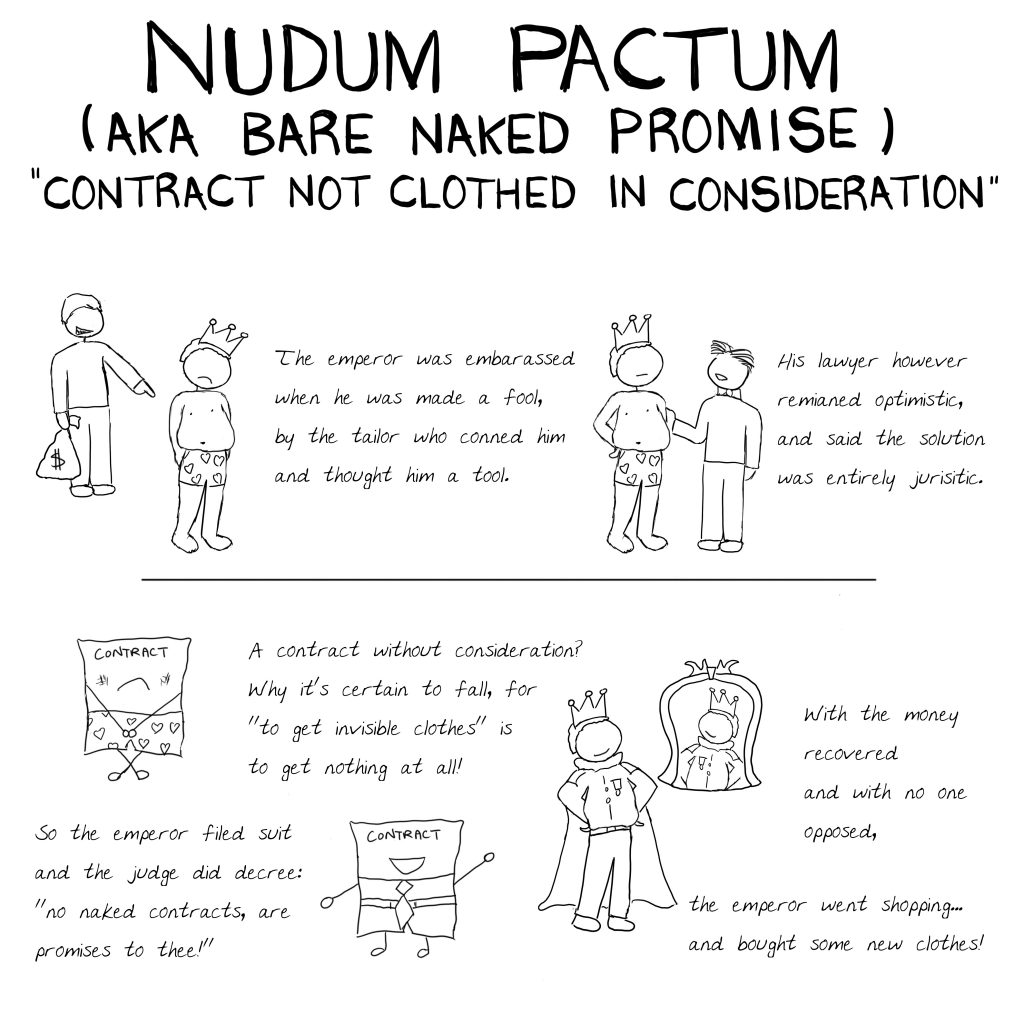 NUDUM PACTUM
(AKA BARE NAKED PROMISE)
"CONTRACT NOT CLOTHED IN CONSIDERATION"
$
The emperor was embarassed
when he was made a fool,
by the tailor who conned him
and thought him a tool.
His lawyer however
remianed optimistic,
and said the solution
was entirely jurisitic.
CONTRACT
A contract without consideration?
Why it's certain to fall, for
"to get invisible clothes" is
to get nothing at all!
So the emperor filed suit
and the judge did decree:
"no naked contracts, are
promises to thee!"
CONTRACT
With the money
recovered
and with no one
opposed,
the emperor went shopping...
and bought some new clothes!